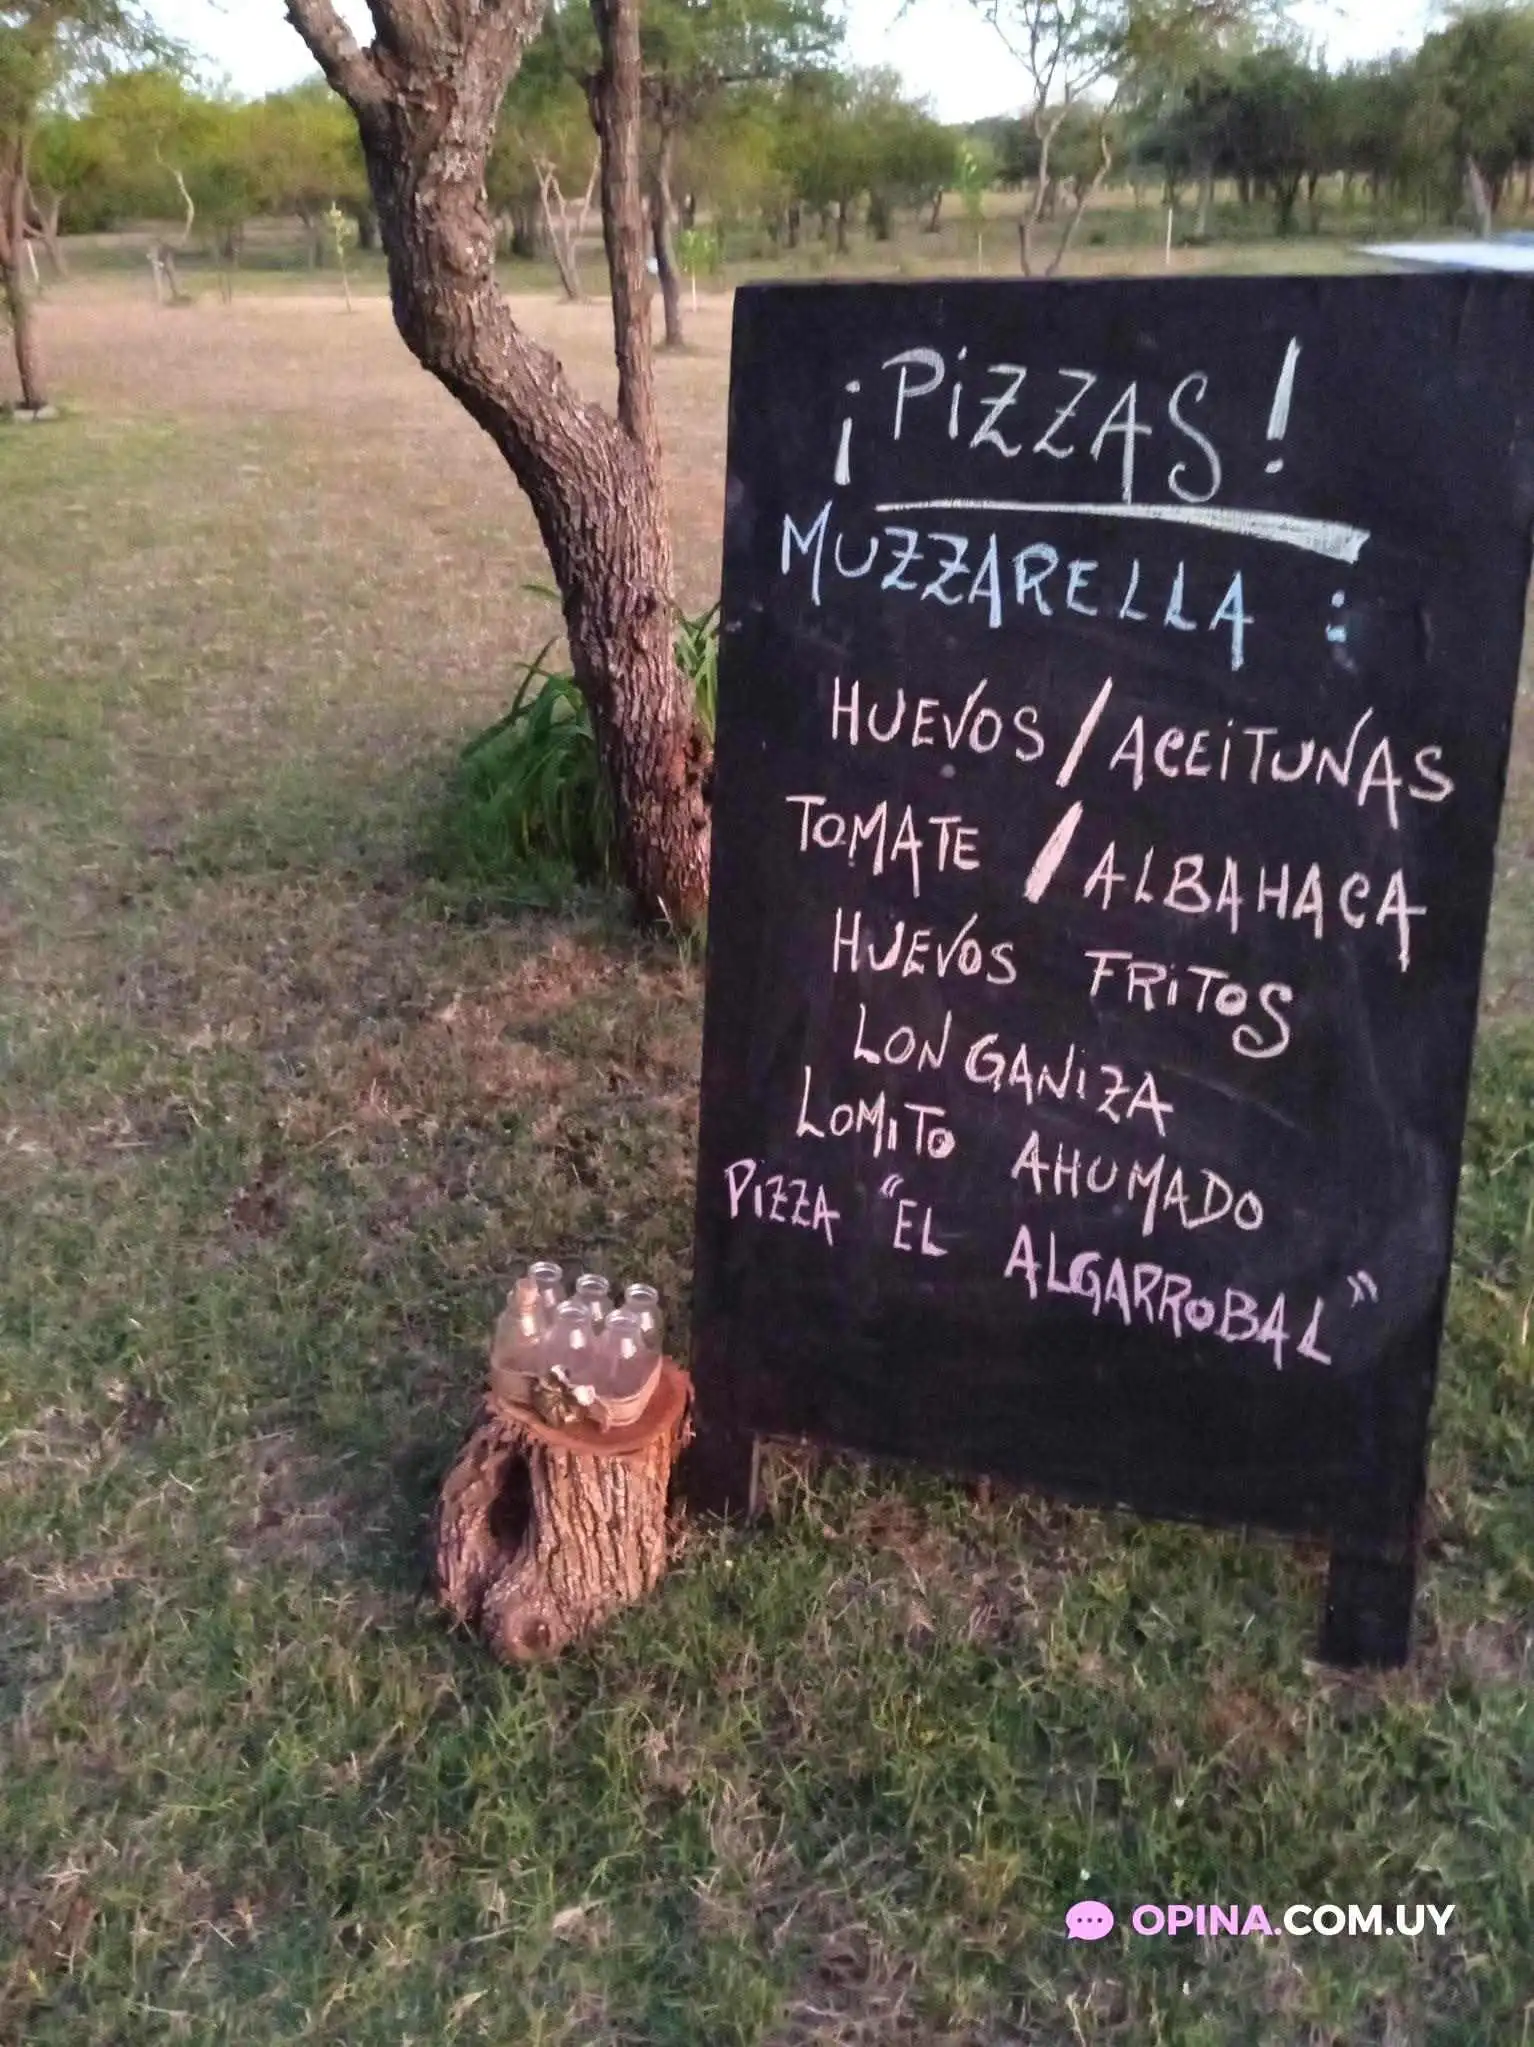 ¡PIZZAS!
MUZZARELLA :
HUEVOS / ACEITUNAS
TOMATE / ALBAHACA
HUEVOS FRITOS
LONGANIZA
LOMITO AHUMADO
PIZZA "EL ALGARROBAL"
OPINA.COM.UY